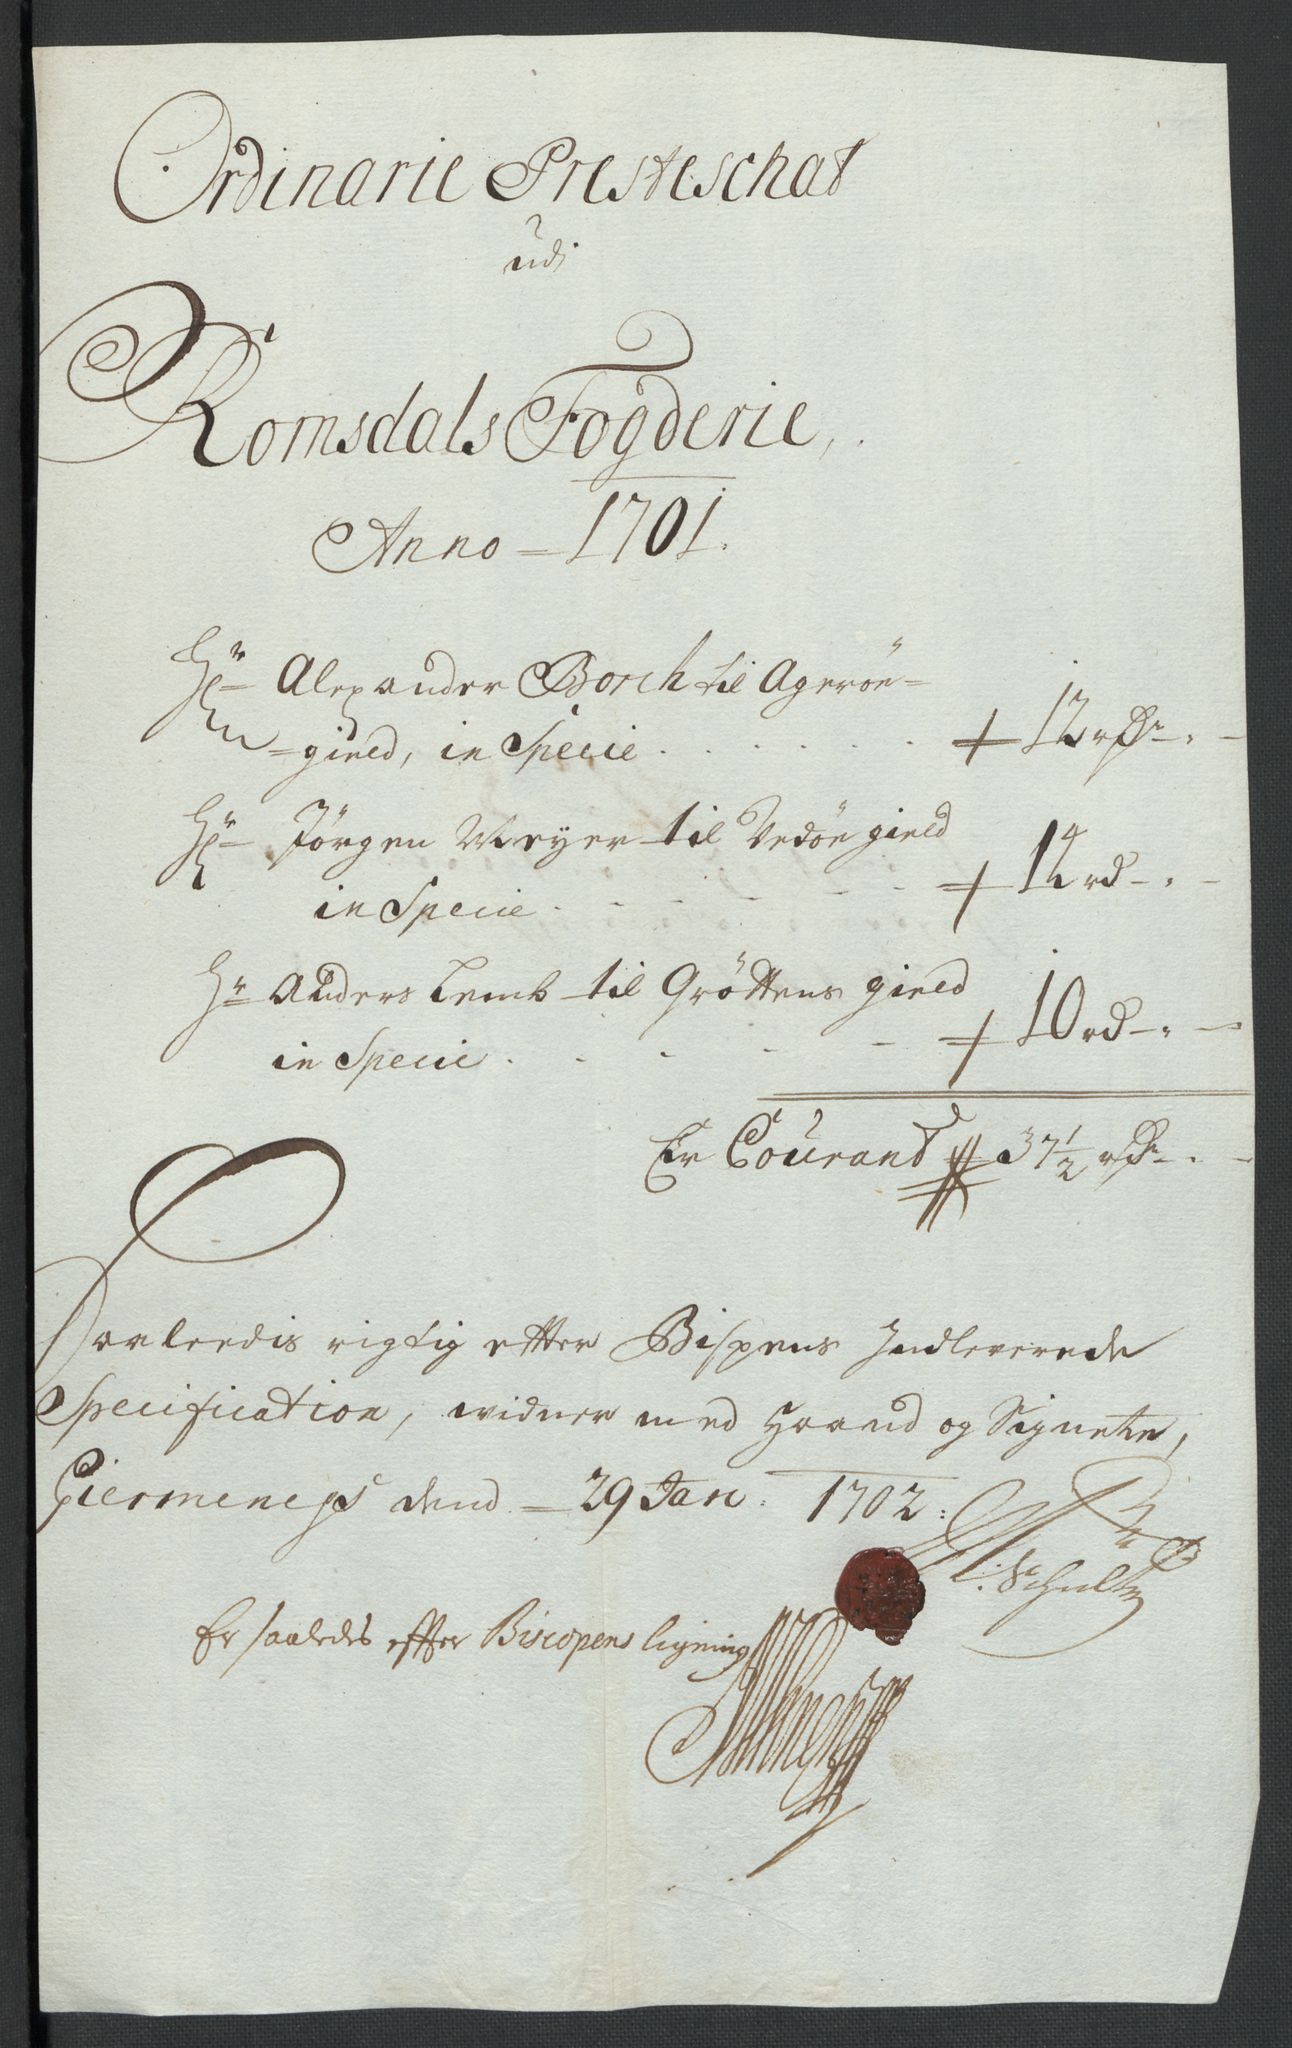 Ordinarie Presteschat
udi
Romsdals Fogderie,
Anno = 1701.
Hr Alexander Borch til Agerøe=
=gield, in Specie 12 rdr
Hr Jørgen Meyer til Vedøe gield
in Specie 12 rd
Hr Anders Lemb til Grøttens gield
in Specie 10 rd
Er Courant 37 1/2 rdr
Saaleedis rigtig efter Bispens Indleverede
Specification, widner med Haand og Signete,
den 29 Jan: 1702:
Schultz
Er saaledes efter Biscopens ligning